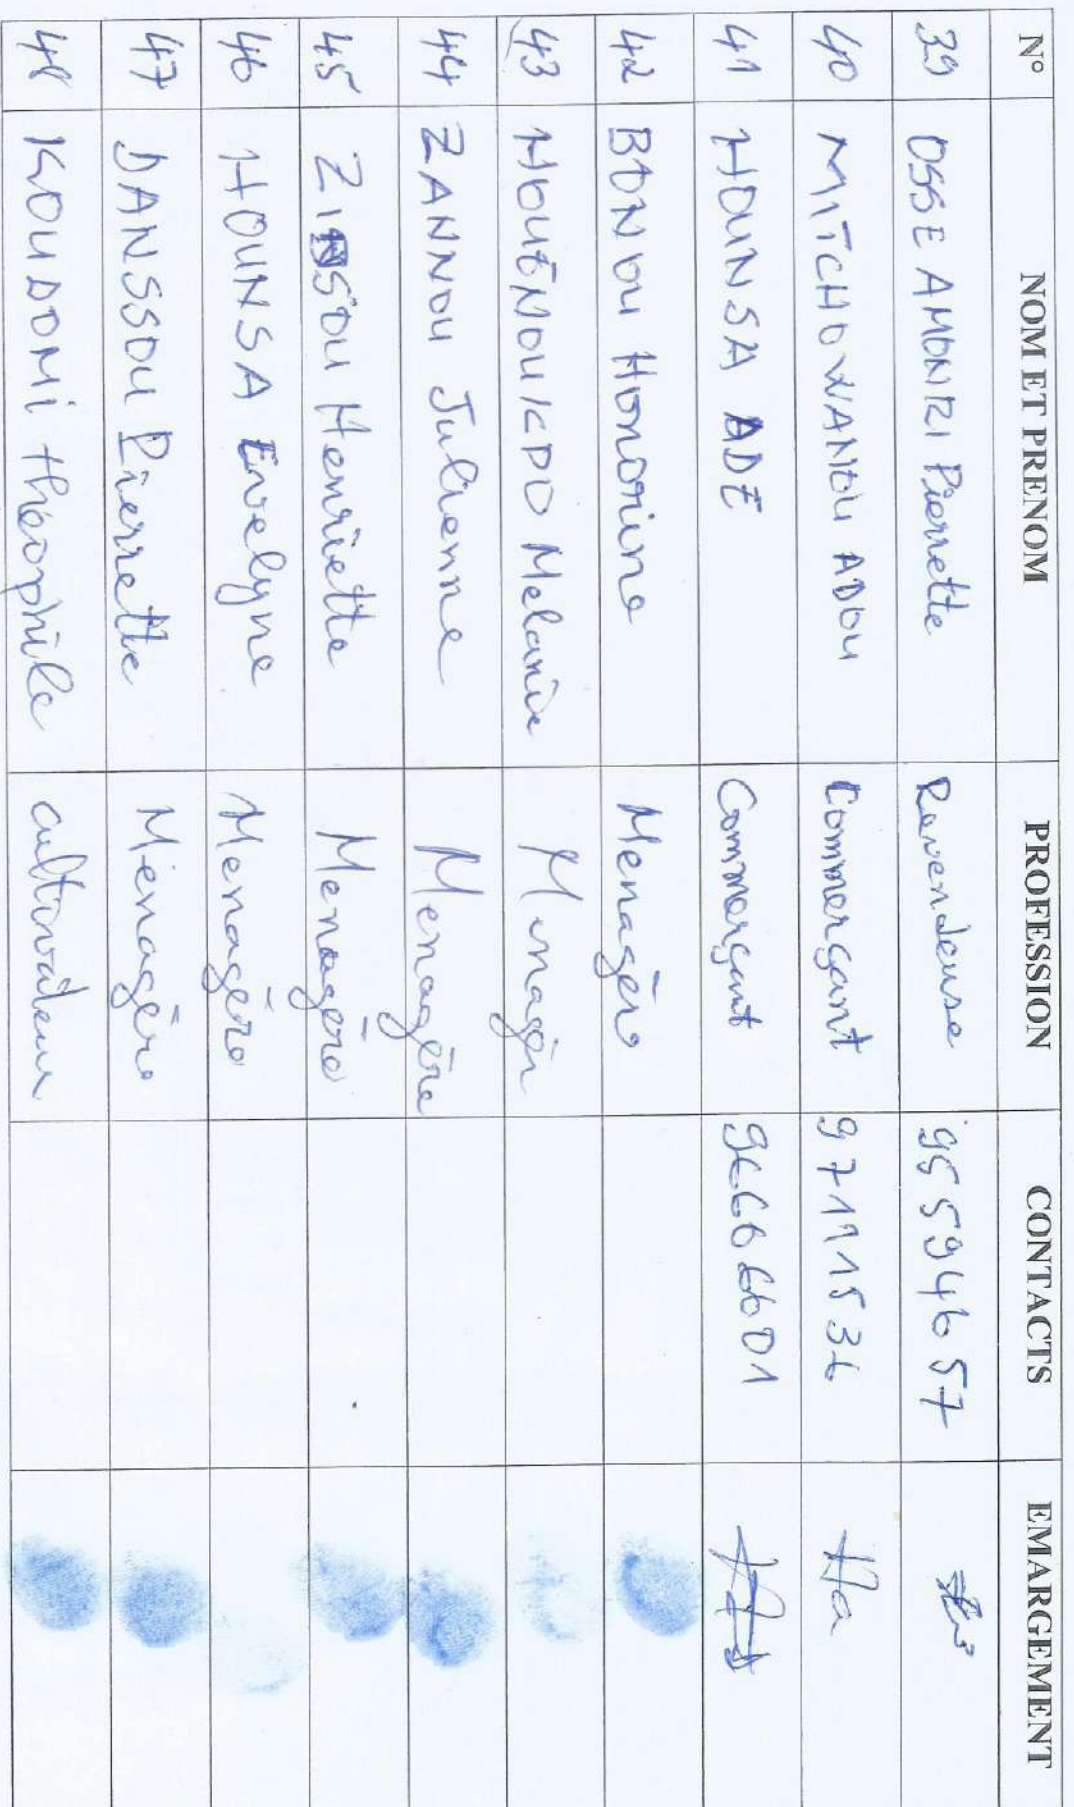 N° NOM ET PRENOM PROFESSION CONTACTS EMARGEMENT
39 OSSE AMONRI Pierrette Revendeuse 95594657
40 MITCHOWANOU ADOU Commerçant 97111536
41 HOUNSA ADE Commerçant 96666601
42 BONOU Honorine Menagère
43 HOUÉNOUKPO Melanie Menagèr
44 ZANNOU Julienne Menagère
45 ZINSOU Henriette Menagère
46 HOUNSA Evelyne Menagère
47 DANSSOU Pierrette Ménagère
48 KOUDOMI théophile cultivateur